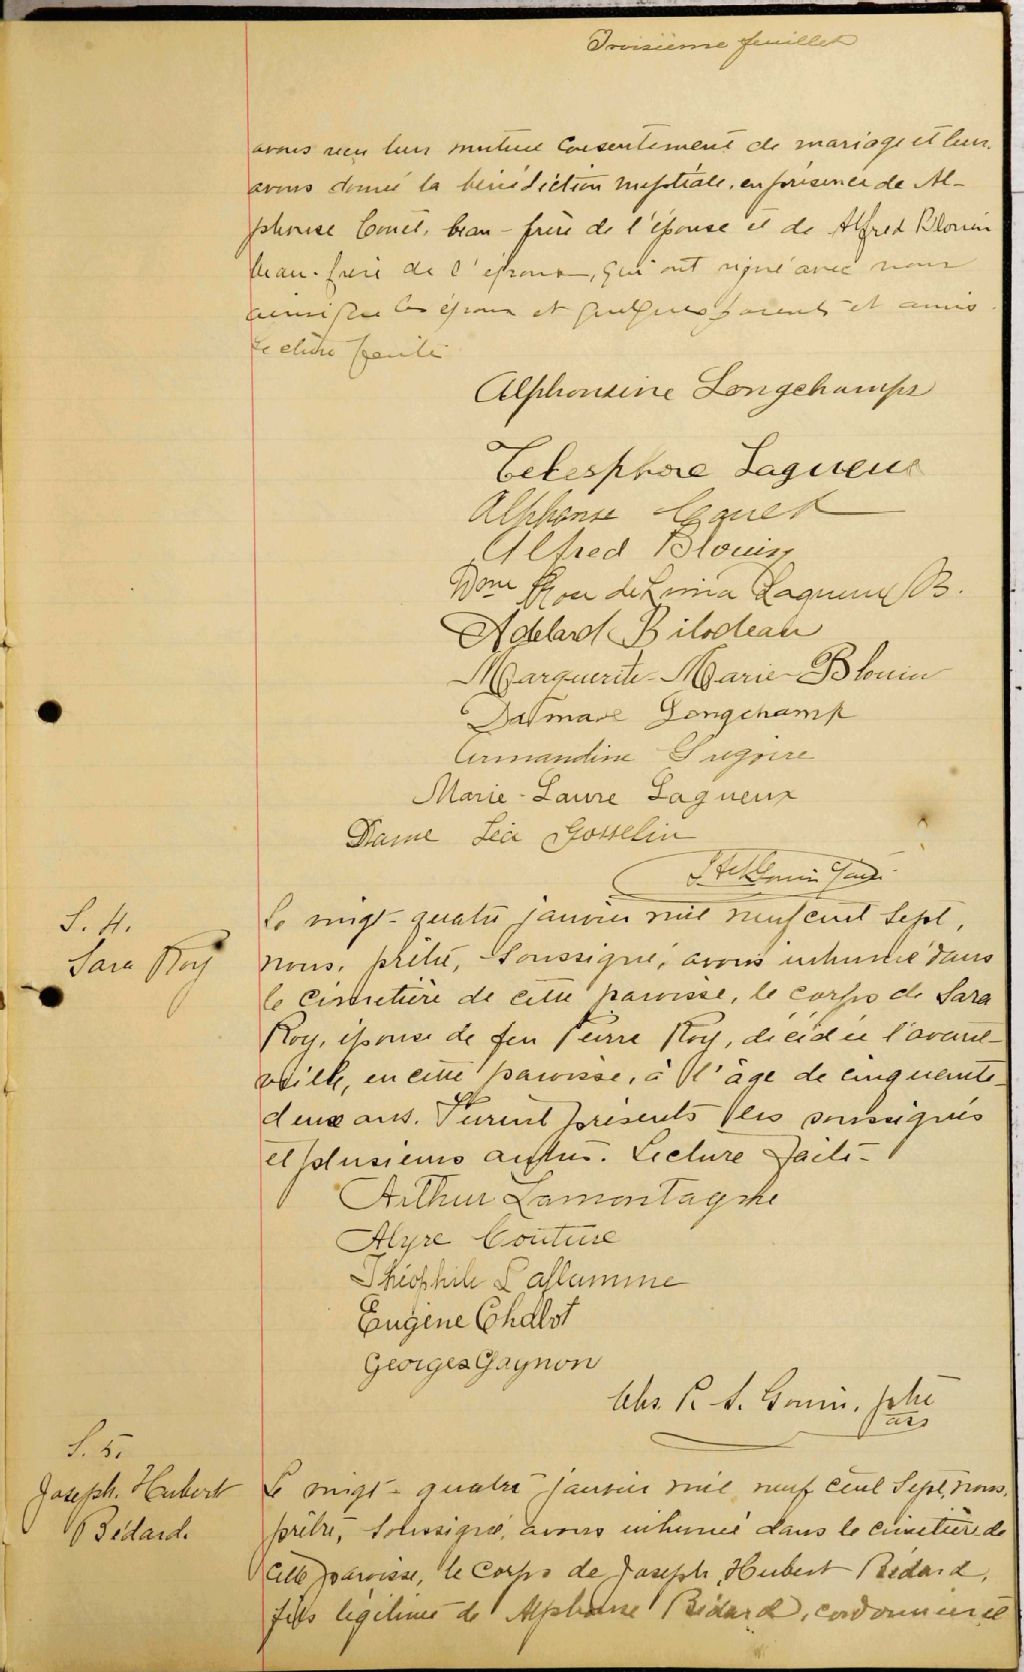 Troisième feuillet
avons reçu leur mutuel consentement de mariage et leur
avons donné la bénédiction nuptiale, en présence de Al-
phonse Couët, beau-frère de l'épouse et de Alfred Blouin
beau-frère de l'époux, qui ont signé avec nous
ainsi que les époux et quelques parents et amis.
Lecture faite
Alphonsine Longchamps
Telesphore Lagueux
Alphonse Couet
Alfred Blouin
Dme Rose de Lima Lagueux B.
Adelard Bilodeau
Marguerite-Marie-Blouin
Dalmase Longchamp
Armandine Gregoire
Marie-Laure Lagueux
Dame Léa Gosselin
S. 4.
Sara Roy
Le vingt-quatre janvier mil neuf cent sept,
nous, prêtre, soussigné, avons inhumé dans
le cimetière de cette paroisse, le corps de Sara
Roy, épouse de feu Pierre Roy, décédée l'avant-
veille, en cette paroisse, à l'âge de cinquante-
deux ans. Furent présents les soussignés
et plusieurs autres. Lecture faite-
Arthur Lamontagne
Alyre Couture
Théophile Laflamme
Eugène Chabot
Georges Gagnon
Chs. R. S. Gouin, ptre
S. 5.
Joseph. Hubert
Bédard.
Le vingt-quatre janvier mil neuf cent sept, nous,
prêtre, soussigné, avons inhumé dans le cimetière de
cette paroisse, le corps de Joseph Hubert Bédard,
fils légitime de Alphonse Bédard, cordonnier, et